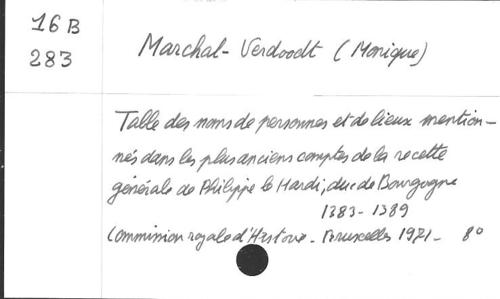 16 B
283
Marchal-Verdoodt (Monique)
Table des noms de personnes et de lieux mention-
nés dans les plus anciens comptes de la recette
générale de Philippe le Hardi, duc de Bourgogne
1383-1389
Commission royale d'Histoire - Bruxelles 1971 - 8°